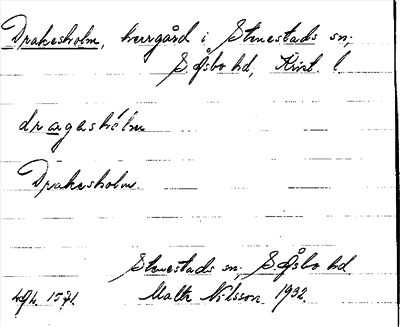 Drakesholm, herrgård i Stenestads sn;
S. Åsbo hd, Krist. l.
dragashólm
Drakesholm.
Stenestads sn; S. Åsbo hd
Malte Nilsson 1932